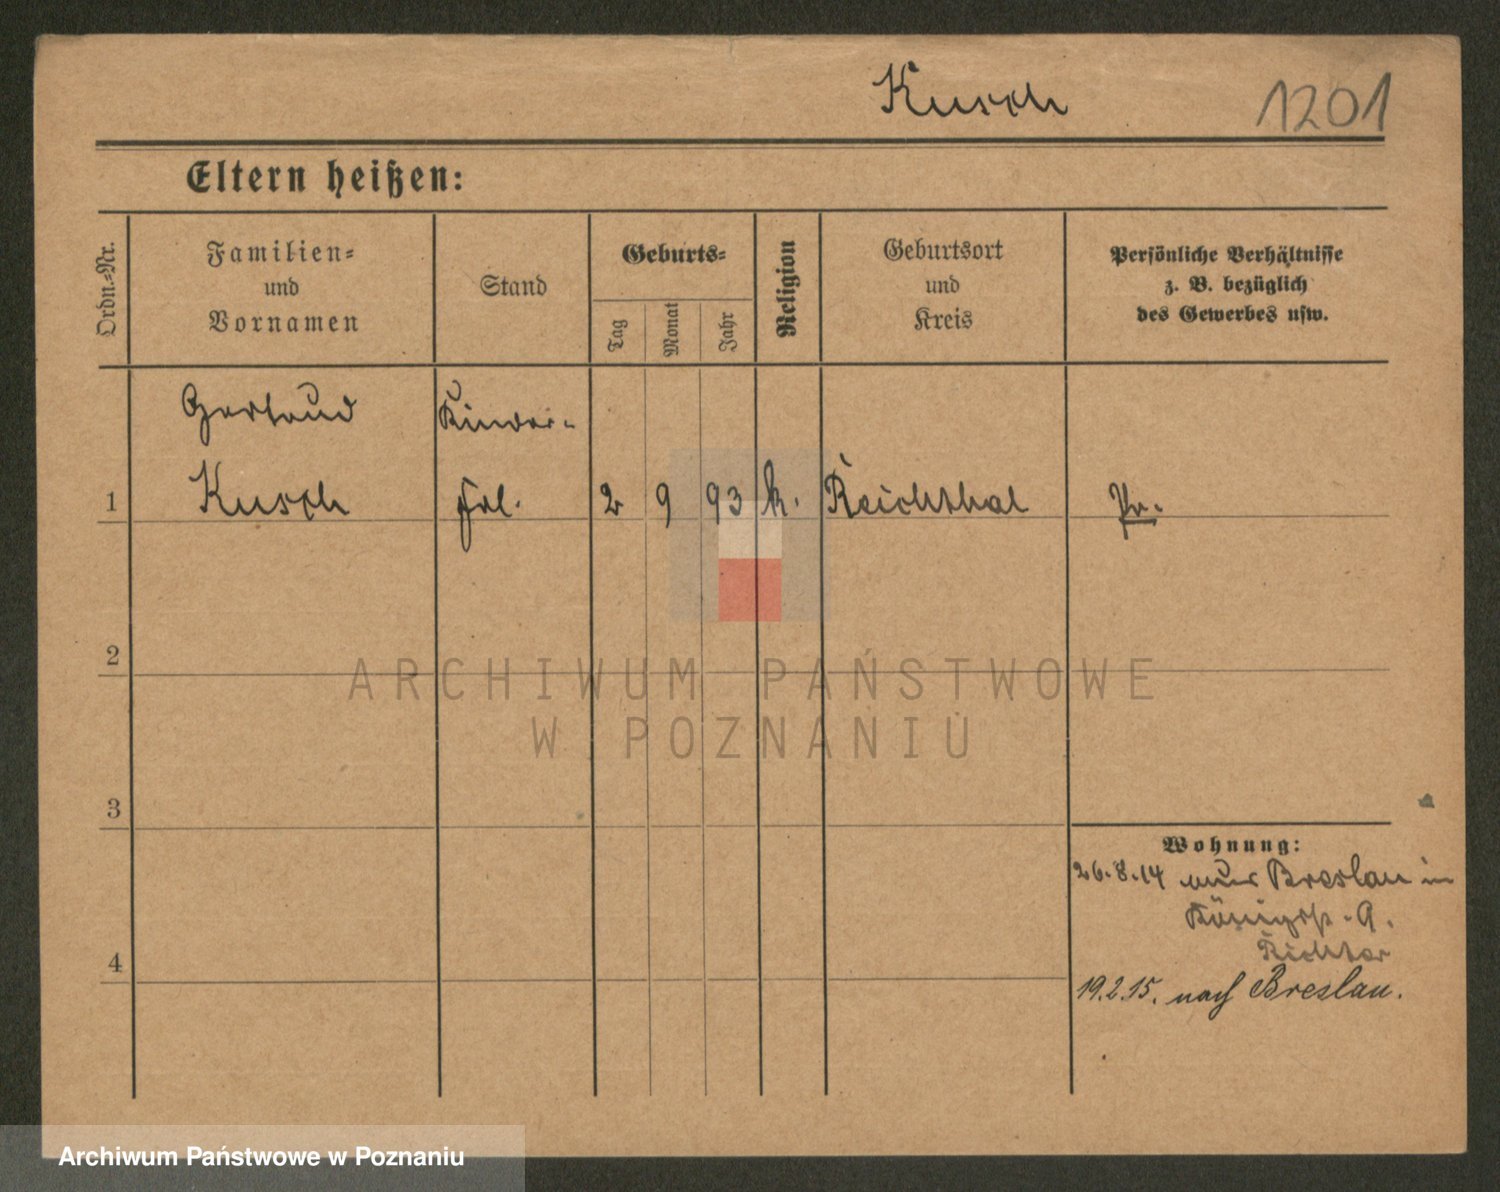 Kusch 1201
Eltern heißen:
Ordn.-Nr.
Familien-
und
Vornamen
Stand
Geburts-
Tag
Monat
Jahr
Religion
Geburtsort
und
Kreis
Persönliche Verhältnisse
z. B. bezüglich
des Gewerbes usw.
Gertrud Kinder-
1 Kusch Frl. 2 9 93 k. Reichthal Pr.
2
ARCHIWUM PAŃSTWOWE
W POZNANIU
3
Wohnung:
26.8.14 aus Breslau in
Königspl. 9.
Richter
4
19.2.15. nach Breslau.
Archiwum Państwowe w Poznaniu